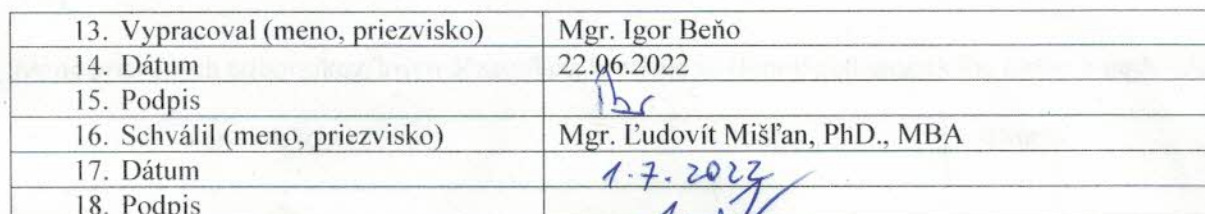 13. Vypracoval (meno, priezvisko) Mgr. Igor Beňo
14. Dátum 22.06.2022
15. Podpis
16. Schválil (meno, priezvisko) Mgr. Ľudovít Mišľan, PhD., MBA
17. Dátum 1.7.2022
18. Podpis